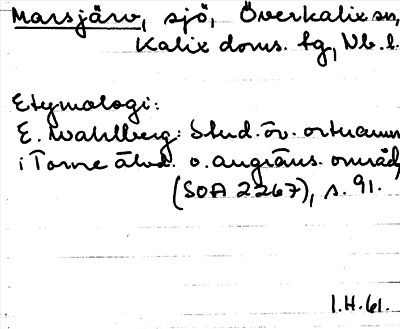 Marsjärv, sjö, Överkalix sn,
Kalix doms. tg, Nb. l.
Etymologi:
E. Wahlberg: Stud. öv. ortnamn
i Torne älvd. o. angräns. områd,
(SOA 2267), s. 91.
I.H. 61.